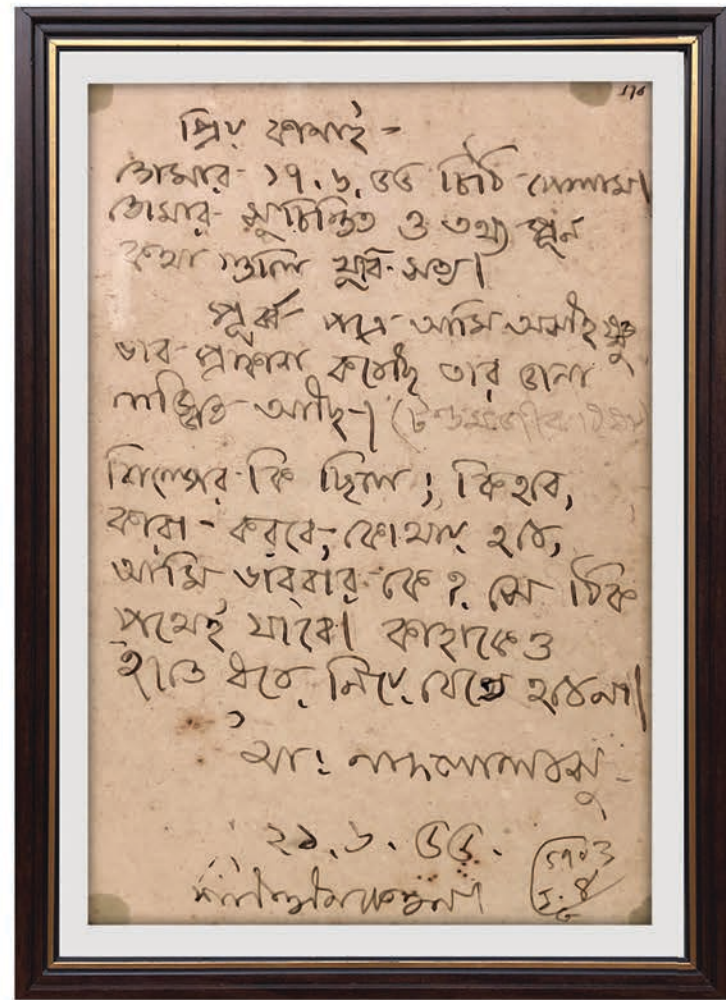 ১৭৬
প্রিয় কানাই -
তোমার - ১৭.৬.৫৫ চিঠি পেলাম।
তোমার সুচিন্তিত ও তথ্য পূর্ন
কথা গুলি খুবি সত্য।
পূর্ব্ব পত্রে আমি
ভাব প্রকাশ করেছি তার জন্য
লজ্জিত আছি।
শিল্পের কি ছিল; কি হবে,
কারা - করবে, কোথায় হবে,
আমি ভাববার কে? সে ঠিক
পথেই যাবে। কাহাকেও
হাত ধরে নিয়ে যেতে হবেনা।
নন্দলাল বসু
২১.৬.৫৫.
শান্তিনিকেতন।